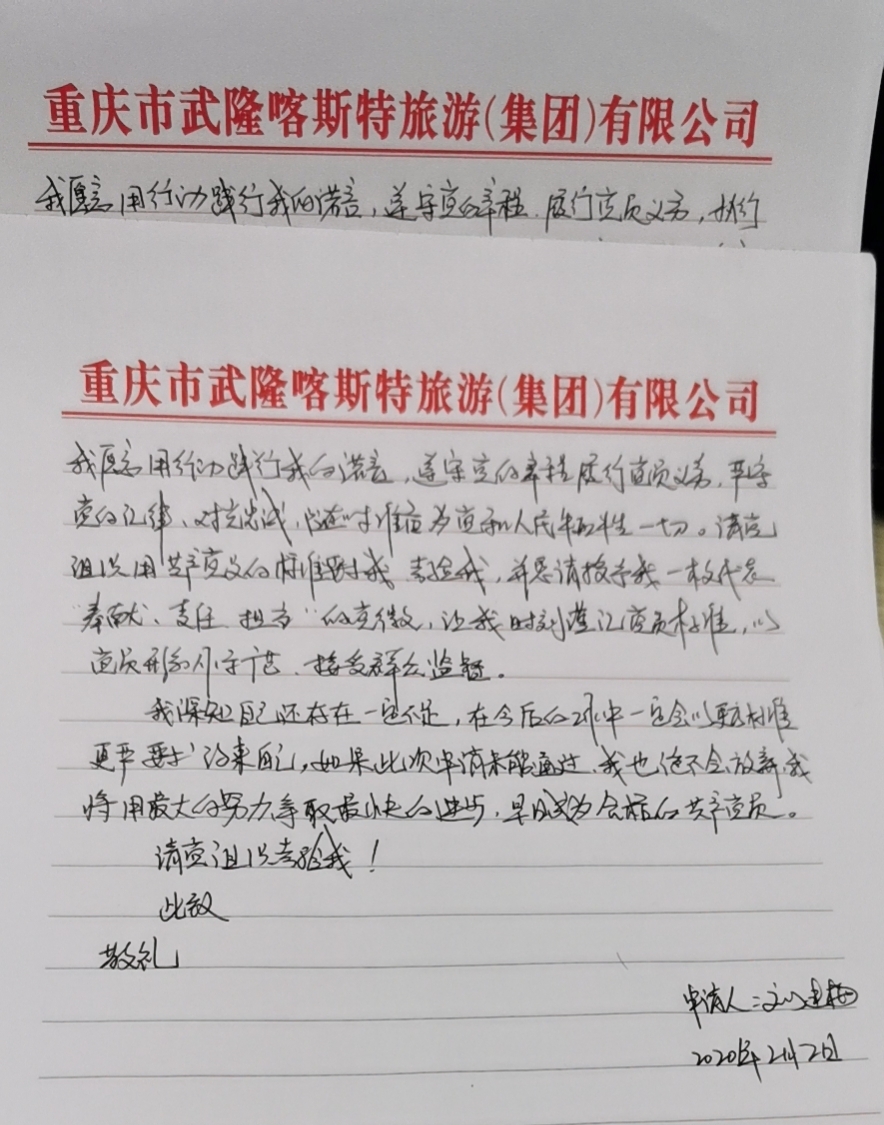 重庆市武隆喀斯特旅游(集团)有限公司
我愿意用行动践行我的诺言,遵守党的章程、履行党员义务,执行
重庆市武隆喀斯特旅游(集团)有限公司
我愿意用行动践行我的诺言,遵守党的章程履行党员义务,严守
党的纪律、对党忠诚,随时准备为党和人民牺牲一切。请党
组织用共产党员的标准 我 考验我,并恳请授予我一枚代表
“奉献、责任 担当”的党徽,让我时刻谨记党员标准,以
党员形象 ,接受群众监督。
我深知自己还存在一定不足,在今后的工作中一定会以更高标准
更严要求约束自己,如果此次申请未能通过,我也绝不会放弃,我
将用最大的努力争取最快的进步,早日成为合格的共产党员。
请党组织考验我!
此致
敬礼
申请人:刘建
2020年2月2日